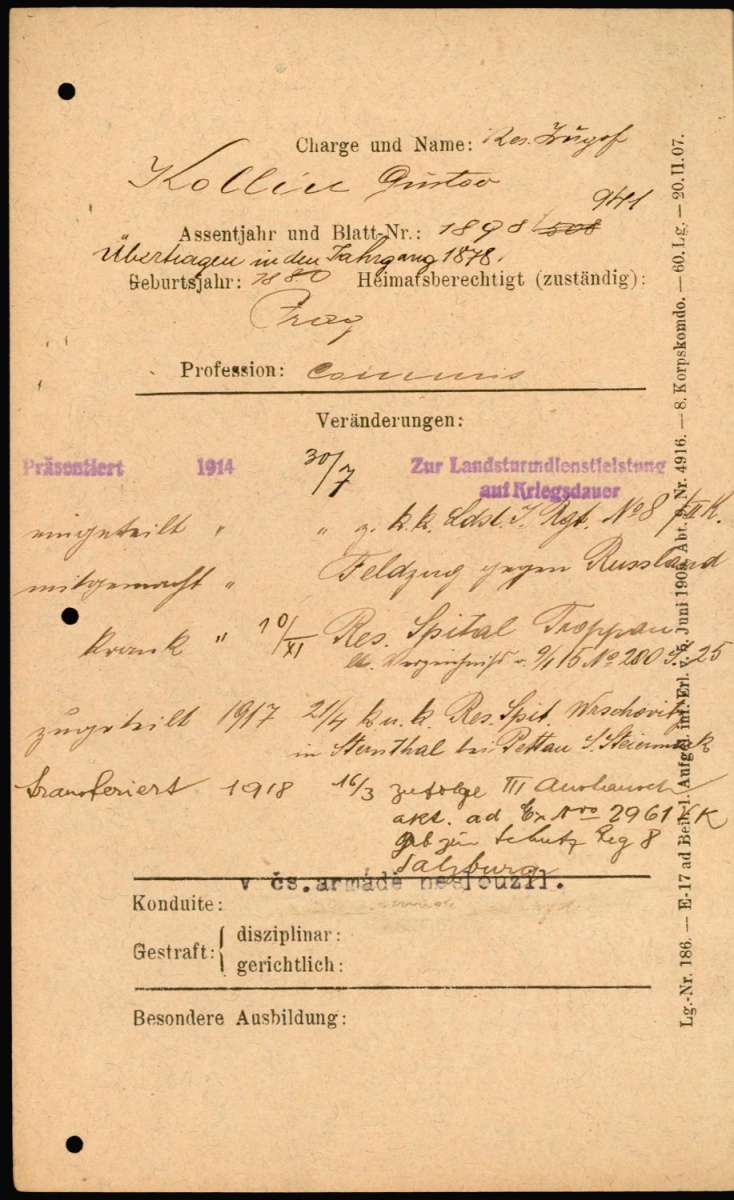 Charge und Name: Res. Zugsf
Kollin Gustav
941
Assentjahr und Blatt-Nr.: 1898/508
Übertragen in den Jahrgang 1878.
Geburtsjahr: 1880 Heimatsberechtigt (zuständig):
Prag
Profession: Commis
Veränderungen:
Präsentiert 1914 30/7 Zur Landsturmdienstleistung
auf Kriegsdauer
eingeteilt " " z. k.k. Ldst. I. Rgt. No 8 /III K.
mitgemacht " Feldzug gegen Russland
krank " 10/XI Res. Spital Troppau
lt. Verzeichniß v. 9/1 15 No 280 S. 25
zugeteilt 1917 21/4 k.u.k. Res. Spit. Wrschovitz
in Sternthal bei Pettau S. Steiermark
transferiert 1918 16/3 zufolge III Austausch
akt. ad Ex Nro 2961/K
zum Schutz Reg 8
Salzburg
v čs. armádě nesloužil.
Konduite:
Gestraft: { disziplinar:
gerichtlich:
Besondere Ausbildung:
Lg.-Nr. 186. — E-17 ad Beil. 1. Aufgel. inf. Erl. v. 5. Juni 1905, Abt. 9, Nr. 4916. — 8. Korpskomdo. — 60. Lg. — 20. II. 07.